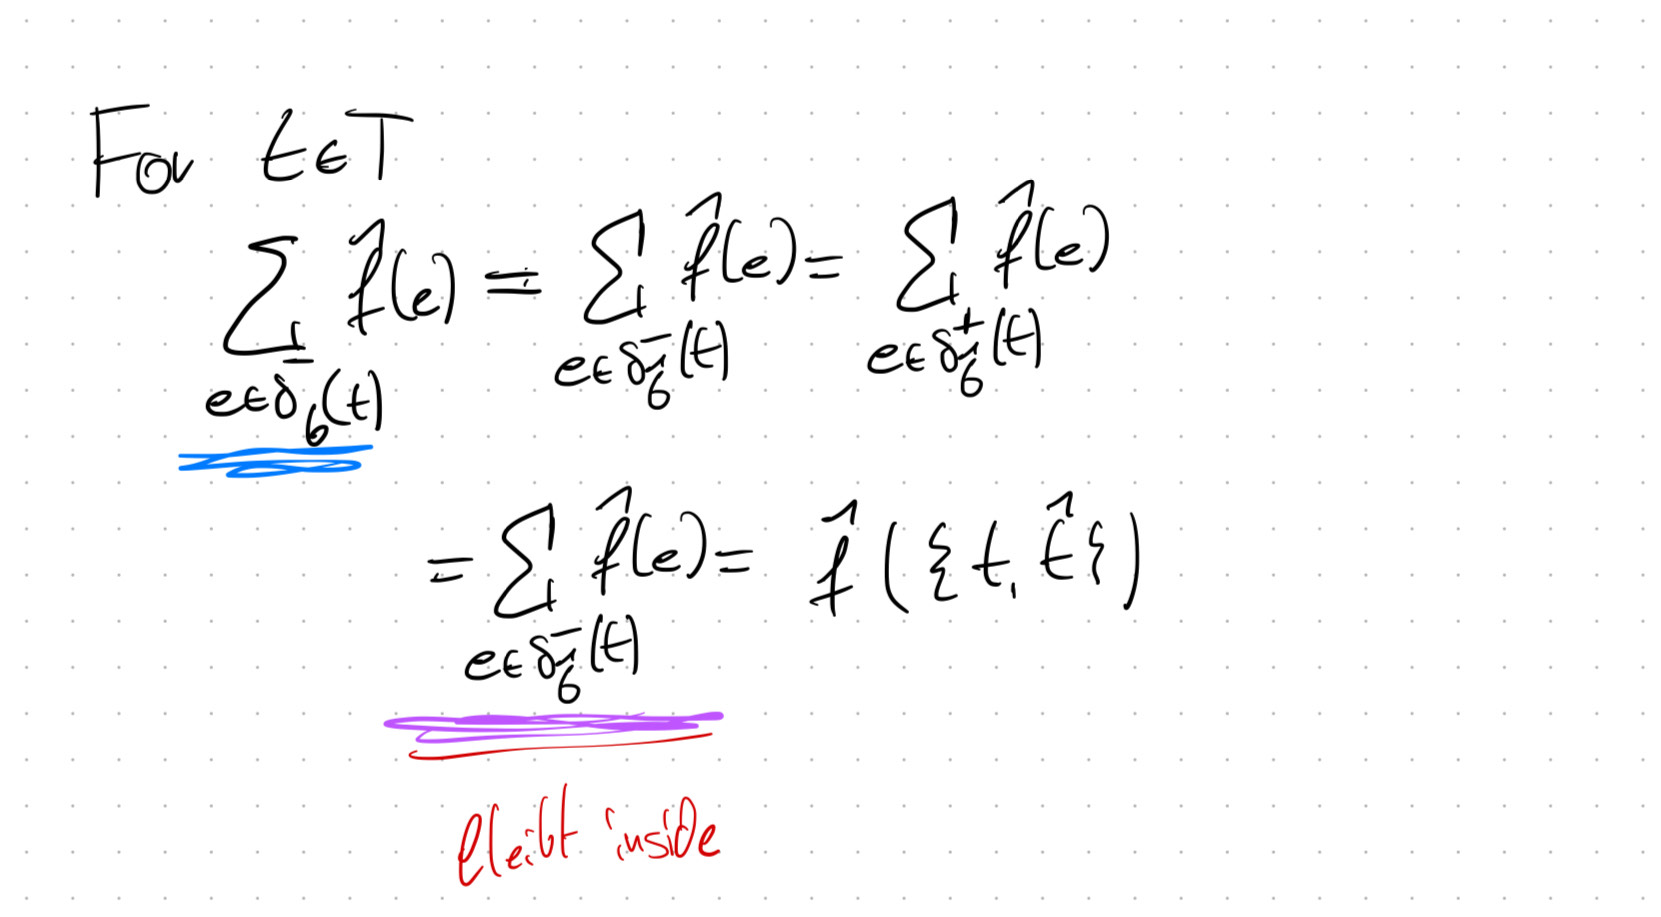 For t∈T
∑_{e∈δ⁻_G(t)} f̂(e) = ∑_{e∈δ⁻_Ĝ(t)} f̂(e) = ∑_{e∈δ⁺_Ĝ(t)} f̂(e)
= ∑_{e∈δ⁻_Ĝ(t)} f̂(e) = f̂({t, t̂})
bleibt inside